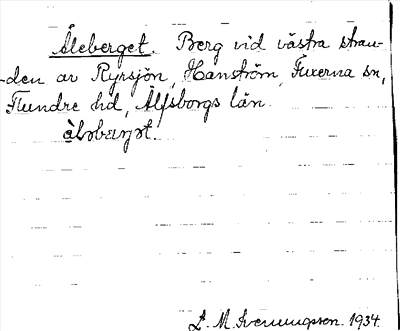 Åleberget. Berg vid västra stran-
den av Ryrsjön, Hanström, Fuxerna sn,
Flundre hd, Älfsborgs län.
L. M. Svenungsson. 1934.